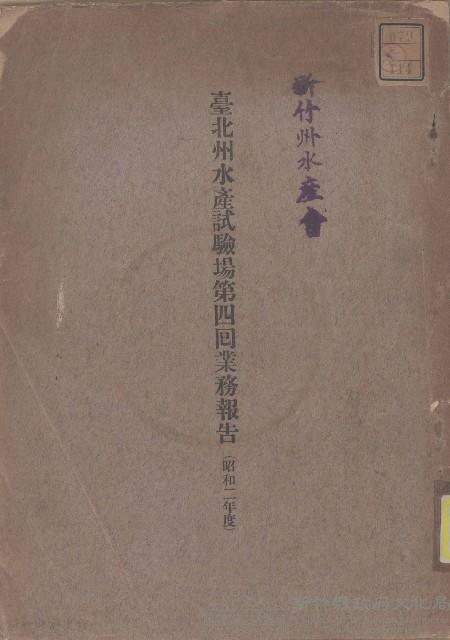 新竹州水産會
臺北州水產試驗場第四囘業務報告
(昭和二年度)
079
新竹縣政府文化局